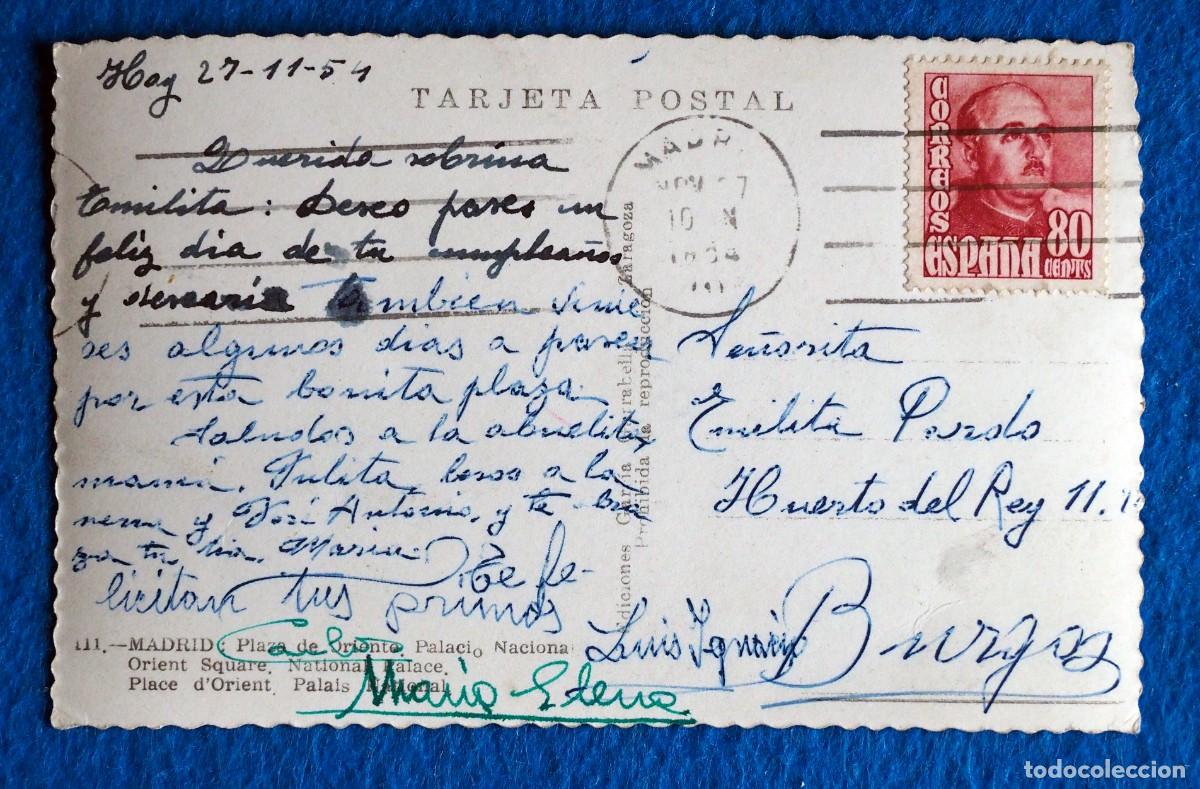 Hoy 27-11-54
TARJETA POSTAL
Querida sobrina
Emilita: Deseo pases un
feliz dia de tu cumpleaños
y desearia tambien vinie
ses algunos dias a pasear
por esta bonita plaza.
Saludos a la abuelita,
mamá, Julita, besos a la
nena y José Antonio, y te abra
za tu tia, Maria.
Te fe-
licitan tus primos
Luis Ignacio
Maria Elena
111.—MADRID: Plaza de Oriente. Palacio Nacional
Orient Square. National Palace.
Place d'Orient. Palais National.
Ediciones García Garrabella Zaragoza
Prohibida la reproducción
MADR
NOV 27
10
1954
CORREOS
ESPAÑA
80
CENTS
Señorita
Emilita Pardo
Huerto del Rey 11.
Burgos
todocoleccion